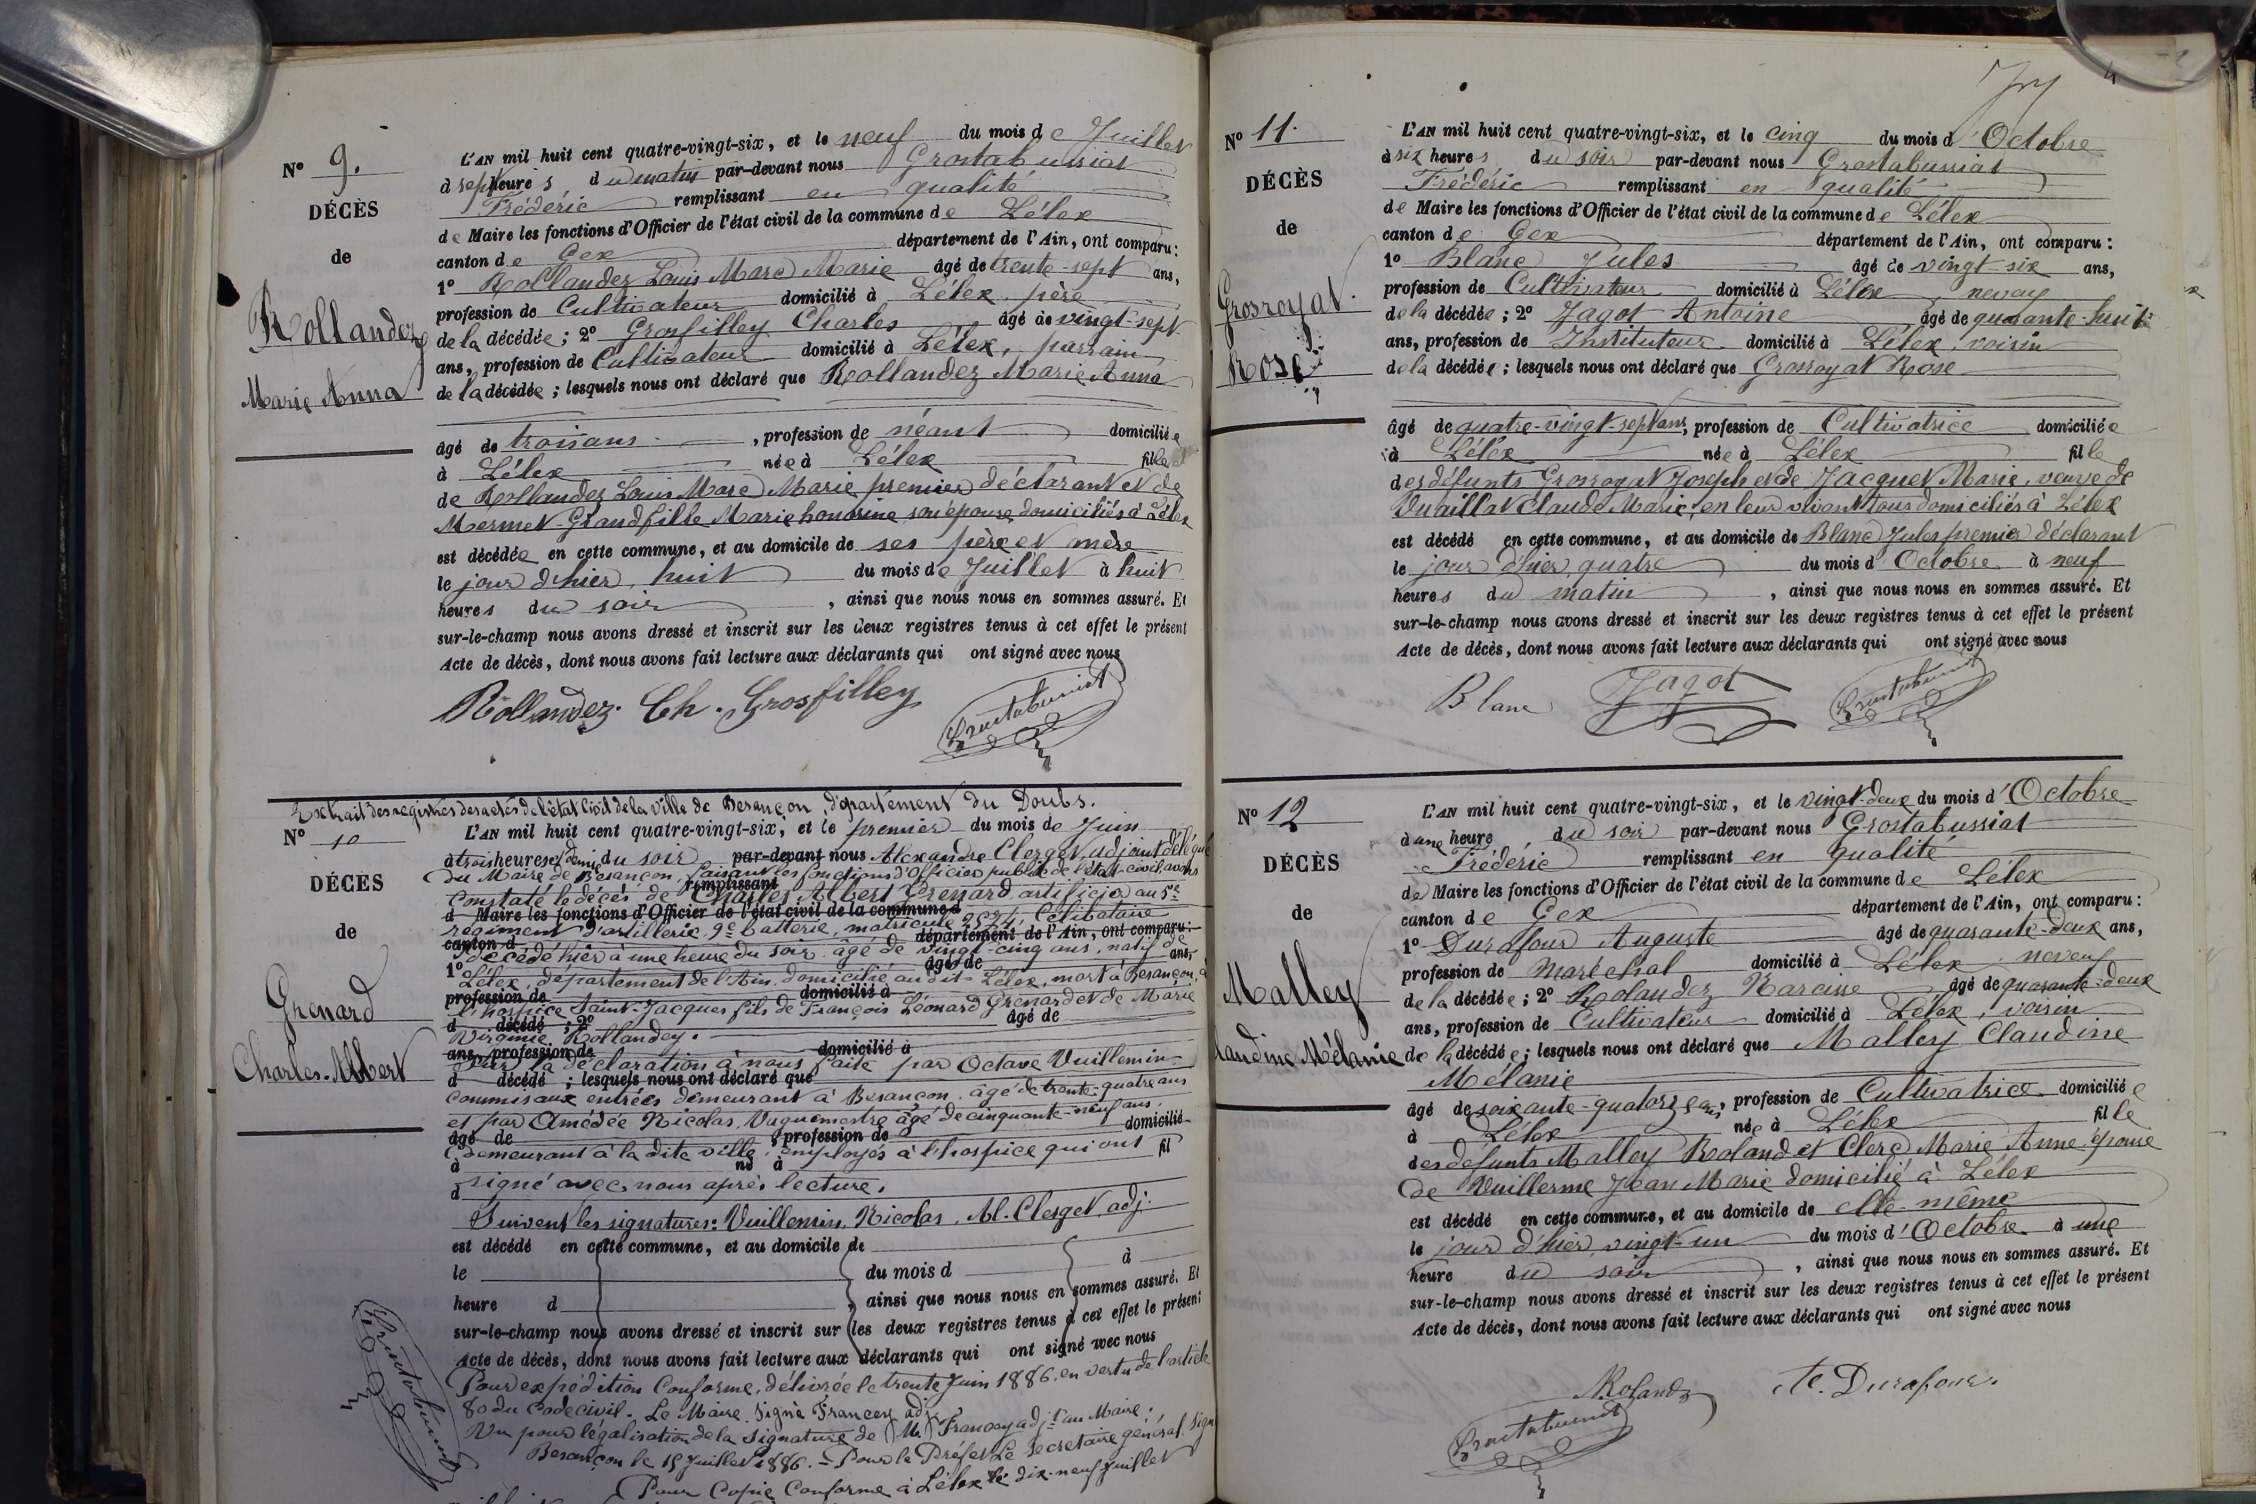 N° 9.
DÉCÈS
de
Rollandez
Marie Anna
L'AN mil huit cent quatre-vingt-six, et le neuf du mois de Juillet
à sept heures du matin par-devant nous Grostabussiat
Frédéric remplissant en qualité
de Maire les fonctions d'Officier de l'état civil de la commune de Lélex
canton de Gex département de l'Ain, ont comparu :
1° Rollandez Louis Marc Marie âgé de trente-sept ans,
profession de Cultivateur domicilié à Lélex, père
de la décédée ; 2° Grosfilley Charles âgé de vingt-sept
ans, profession de Cultivateur domicilié à Lélex, parrain
de la décédée ; lesquels nous ont déclaré que Rollandez Marie Anna
âgé de trois ans, profession de néant domiciliée
à Lélex née à Lélex fille
de Rollandez Louis Marc Marie premier déclarant et de
Mermet-Grandfille Marie honorine, son épouse domiciliés à Lélex
est décédée en cette commune, et au domicile de ses père et mère
le jour d'hier, huit du mois de Juillet à huit
heures du soir, ainsi que nous nous en sommes assuré. Et
sur-le-champ nous avons dressé et inscrit sur les deux registres tenus à cet effet le présent
Acte de décès, dont nous avons fait lecture aux déclarants qui ont signé avec nous
Rollandez. Ch. Grosfilley Grostabussiat
Extrait des registres des actes de l'état Civil de la Ville de Besançon, département du Doubs.
N° 10
DÉCÈS
de
Grenard
Charles-Albert
L'AN mil huit cent quatre-vingt-six, et le premier du mois de Juin
à trois heures et demie du soir par-devant nous Alexandre Clerget, adjoint délégué
du Maire de Besançon, faisant les fonctions d'Officier public de l'état-civil, avons
remplissant
Constaté le décès de Charles Albert Grenard artificier au 5e
d Maire les fonctions d'Officier de l'état civil de la commune d
régiment d'artillerie, 9e batterie, matricule 2524, Célibataire
canton d département de l'Ain, ont comparu :
décédé hier à une heure du soir, âgé de vingt-cinq ans, natif de
1° âgé de ans,
Lélex, département de l'Ain, domicilié au dit Lélex, mort à Besançon, à
profession de domicilié à
l'hospice Saint-Jacques fils de François Léonard Grenard et de Marie
d décédé ; 2° âgé de
Virginie Rollandez.
ans, profession de domicilié à
Sur la déclaration à nous faite par Octave Vuillemin
d décédé ; lesquels nous ont déclaré que
Commis aux entrées demeurant à Besançon, âgé de trente-quatre ans
et par Amédée Nicolas, Vaguemestre âgé de cinquante-neuf ans,
âgé de, profession de domicilié
demeurant à la dite ville, employés à l'hospice qui ont
à né à fil
signé avec nous après lecture.
d
Suivent les signatures: Vuillemin, Nicolas, Al. Clerget, adj.
est décédé en cette commune, et au domicile de
le du mois d à
heure d, ainsi que nous nous en sommes assuré. Et
sur-le-champ nous avons dressé et inscrit sur les deux registres tenus à cet effet le présent
Acte de décès, dont nous avons fait lecture aux déclarants qui ont signé avec nous
Pour expédition Conforme, délivrée le trente Juin 1886, en vertu de l'article
80 du Code civil. Le Maire. Signé Francey adj.
Vu pour légalisation de la signature de M. Francey adjt au Maire.
Besançon le 15 Juillet 1886. - Pour le Préfet Le Secrétaire général. Signé
Pour Copie Conforme à Lélex le dix-neuf Juillet
Grostabussiat
N° 11.
DÉCÈS
de
Grosroyat
Rose
L'AN mil huit cent quatre-vingt-six, et le cinq du mois d'Octobre
à six heures du soir par-devant nous Grostabussiat
Frédéric remplissant en qualité
de Maire les fonctions d'Officier de l'état civil de la commune de Lélex
canton de Gex département de l'Ain, ont comparu :
1° Blanc Jules âgé de vingt-six ans,
profession de Cultivateur domicilié à Lélex neveu
de la décédée ; 2° Jagot Antoine âgé de quarante-huit
ans, profession de Instituteur domicilié à Lélex, voisin
de la décédée ; lesquels nous ont déclaré que Grosroyat Rose
âgé de quatre-vingt-sept ans, profession de Cultivatrice domiciliée
à Lélex née à Lélex fille
des défunts Grosroyat Joseph et de Jacquet Marie, veuve de
Vuaillat Claude Marie, en leur vivant tous domiciliés à Lélex
est décédé en cette commune, et au domicile de Blanc Jules premier déclarant
le jour d'hier, quatre du mois d'Octobre à neuf
heures du matin, ainsi que nous nous en sommes assuré. Et
sur-le-champ nous avons dressé et inscrit sur les deux registres tenus à cet effet le présent
Acte de décès, dont nous avons fait lecture aux déclarants qui ont signé avec nous
Blanc Jagot Grostabussiat
N° 12
DÉCÈS
de
Malley
Claudine Mélanie
L'AN mil huit cent quatre-vingt-six, et le vingt-deux du mois d'Octobre
à une heure du soir par-devant nous Grostabussiat
Frédéric remplissant en qualité
de Maire les fonctions d'Officier de l'état civil de la commune de Lélex
canton de Gex département de l'Ain, ont comparu :
1° Durafour Auguste âgé de quarante-deux ans,
profession de Maréchal domicilié à Lélex neveu
de la décédée ; 2° Rolandez Narcisse âgé de quarante-deux
ans, profession de Cultivateur domicilié à Lélex, voisin
de la décédée ; lesquels nous ont déclaré que Malley Claudine
Mélanie
âgé de soixante-quatorze ans, profession de Cultivatrice domiciliée
à Lélex née à Lélex fille
des défunts Malley Roland et Clerc Marie Anne épouse
de Vuillerme Jean Marie domicilié à Lélex
est décédé en cette commune, et au domicile de elle-même
le jour d'hier, vingt-un du mois d'Octobre à une
heure du soir, ainsi que nous nous en sommes assuré. Et
sur-le-champ nous avons dressé et inscrit sur les deux registres tenus à cet effet le présent
Acte de décès, dont nous avons fait lecture aux déclarants qui ont signé avec nous
NRolandz A. Durafour.
Grostabussiat